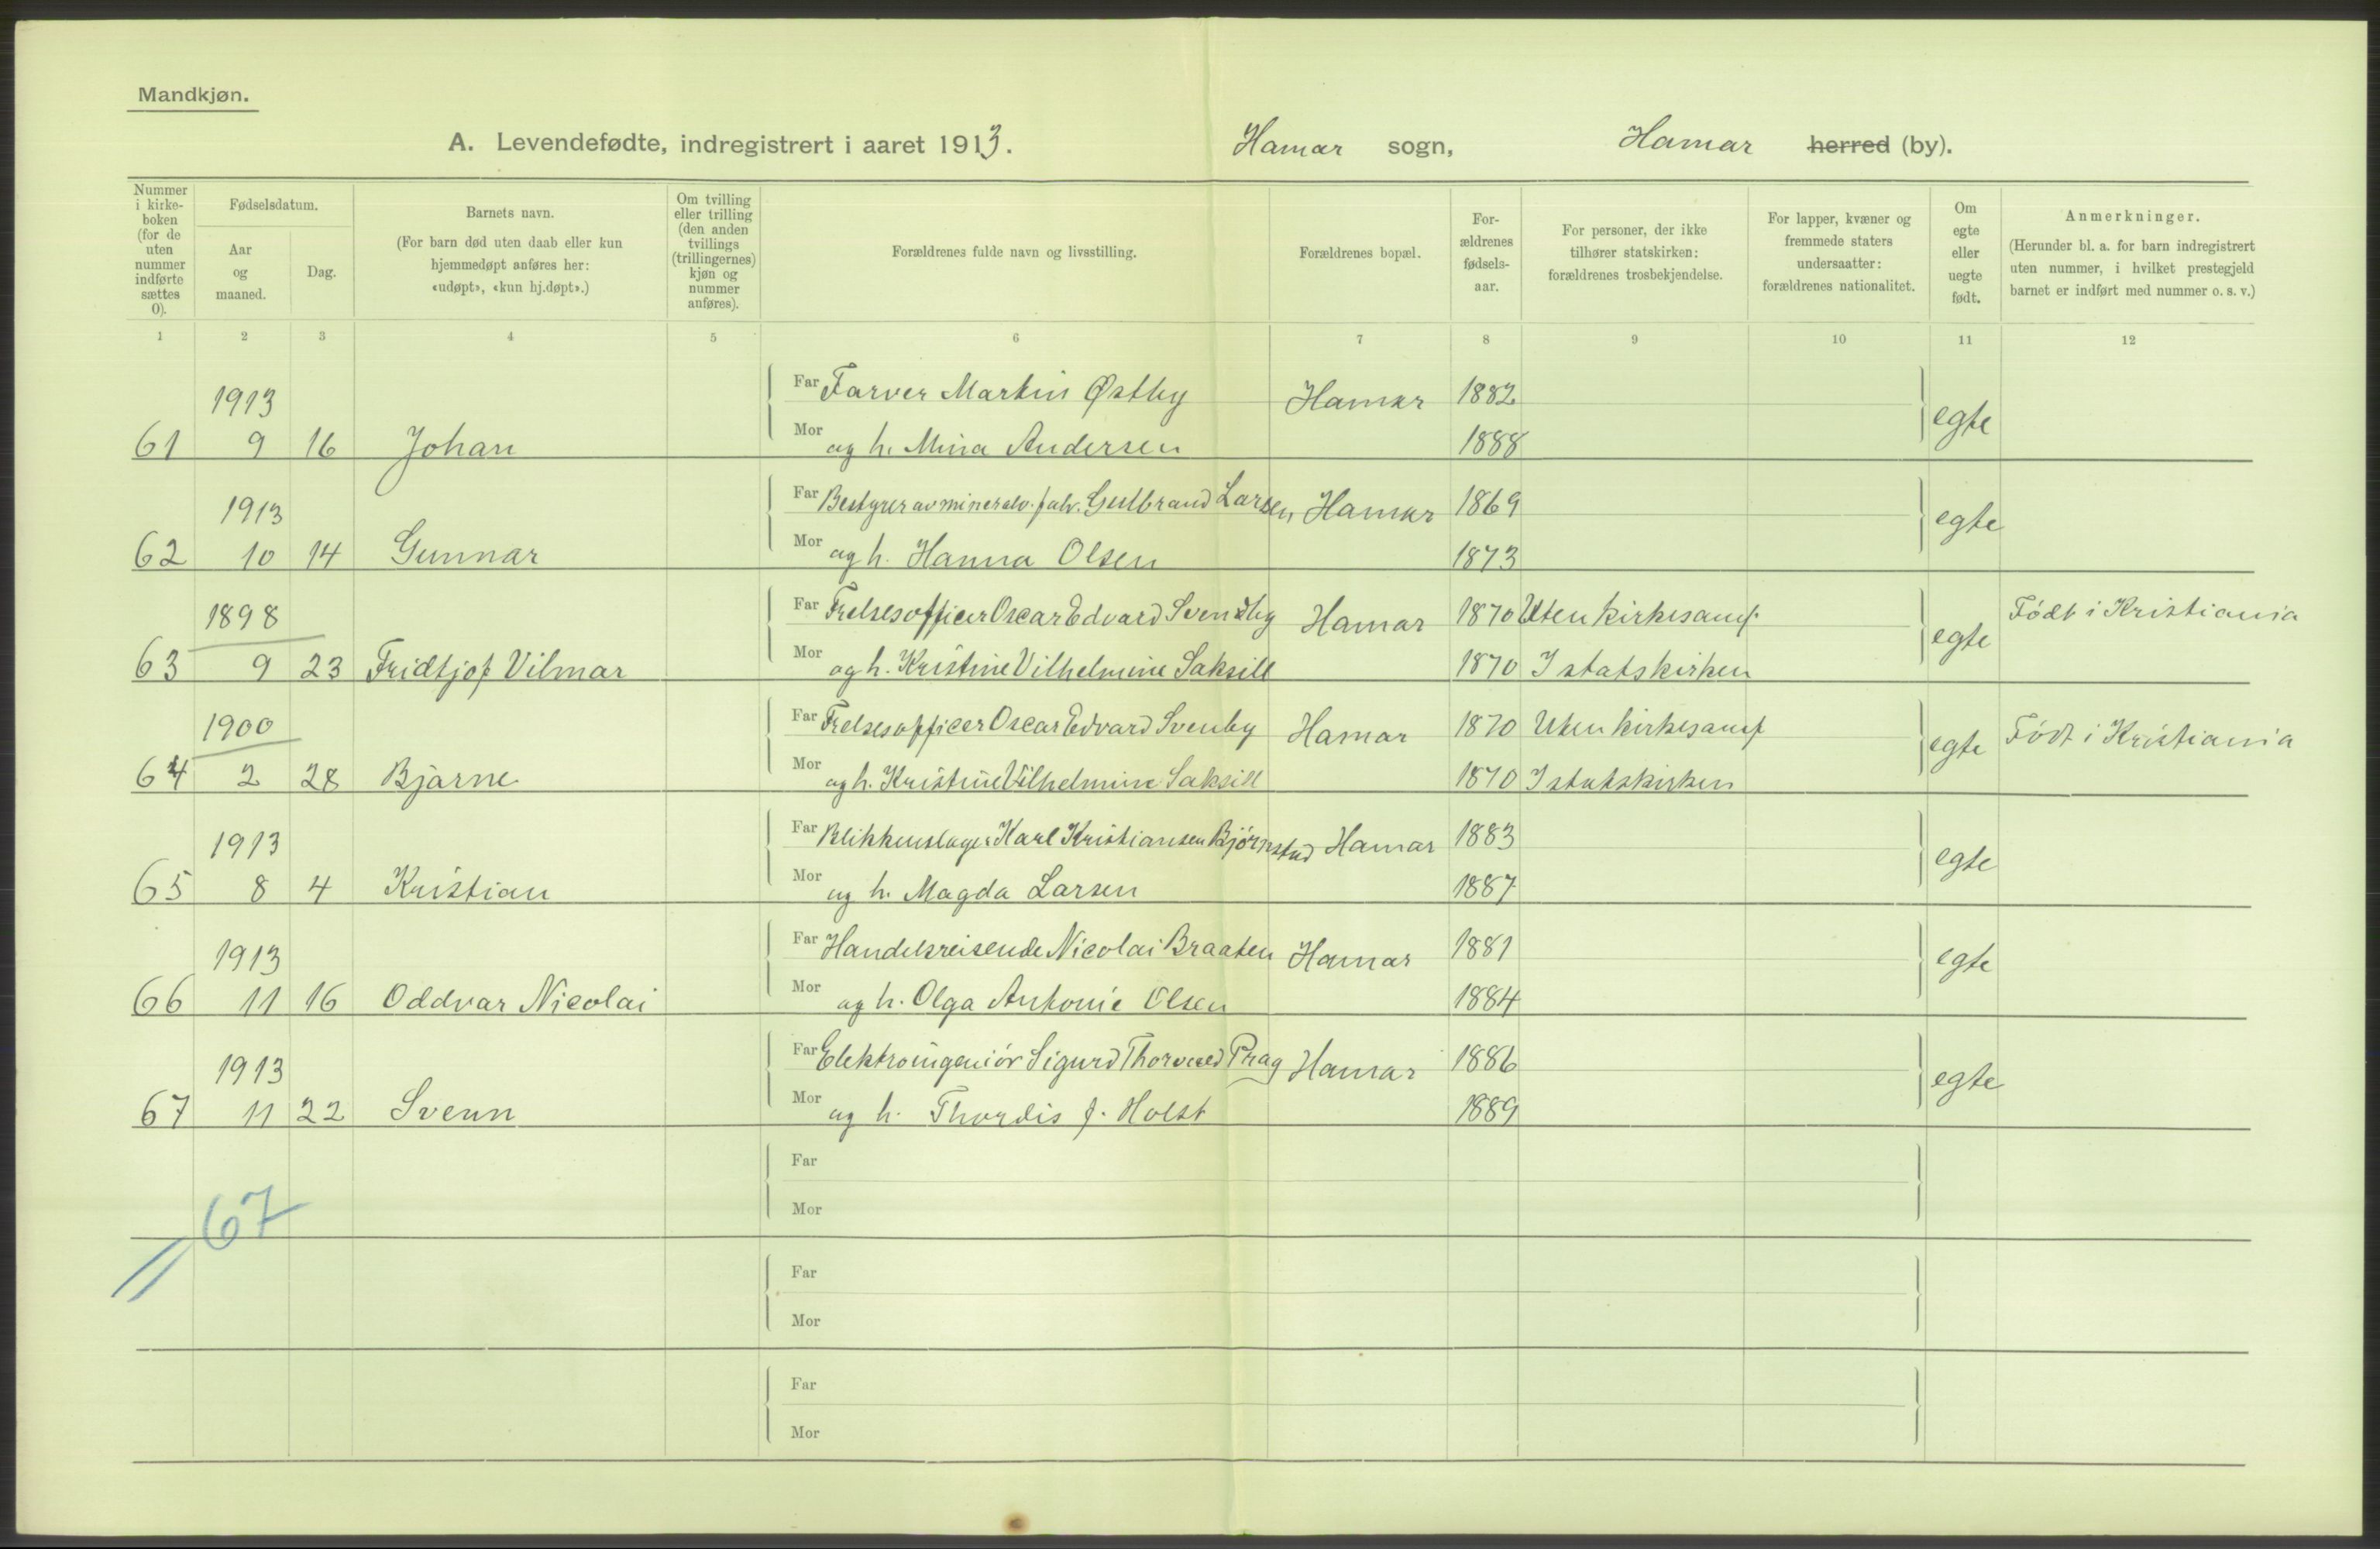 Mandkjøn.
A. Levendefødte, indregistrert i aaret 1913. Hamar sogn, Hamar herred (by).
Nummer i kirke-boken (for de uten nummer indførte sættes 0).
Fødselsdatum.
Aar og maaned.
Dag.
Barnets navn.
(For barn død uten daab eller kun hjemmedøpt anføres her: «udøpt», «kun hj.døpt».)
Om tvilling eller trilling (den anden tvillings (trillingernes) kjøn og nummer anføres).
Forældrenes fulde navn og livsstilling.
Forældrenes bopæl.
For-ældrenes fødsels-aar.
For personer, der ikke tilhører statskirken: forældrenes trosbekjendelse.
For lapper, kvæner og fremmede staters undersaatter: forældrenes nationalitet.
Om egte eller uegte født.
Anmerkninger.
(Herunder bl. a. for barn indregistrert uten nummer, i hvilket prestegjeld barnet er indført med nummer o. s. v.)
1 2 3 4 5 6 7 8 9 10 11 12
1913 Far Farver Martin Østby Hamar 1882 egte
61 9 16 Johan Mor og h. Mina Andersen 1888
1913 Far Bestyrer av mineralv. fabr. Gulbrand Larsen Hamar 1869 egte
62 10 14 Gunnar Mor og h. Hanna Olsen 1873
1898 Far Frelsesofficer Oscar Edvard Svendby Hamar 1870 Uten kirkesamf. egte Født i Kristiania
63 9 23 Fridtjof Vilmar Mor og h. Kristine Vilhelmine Saksill 1870 I statskirken
1900 Far Frelsesofficer Oscar Edvard Svenby Hamar 1870 Uten kirkesamf egte Født i Kristiania
64 2 28 Bjarne Mor og h. Kristine Vilhelmine Saksill 1870 I statskirken
1913 Far Blikkenslager Karl Kristiansen Bjørnstad Hamar 1883 egte
65 8 4 Kristian Mor og h. Magda Larsen 1887
1913 Far Handelsreisende Nicolai Braaten Hamar 1881 egte
66 11 16 Oddvar Nicolai Mor og h. Olga Antonie Olsen 1884
1913 Far Elektroingeniør Sigurd Thorvald Prag Hamar 1886 egte
67 11 22 Svenn Mor og h. Thordis f. Holst 1889
Far
67 Mor
Far
Mor
Far
Mor